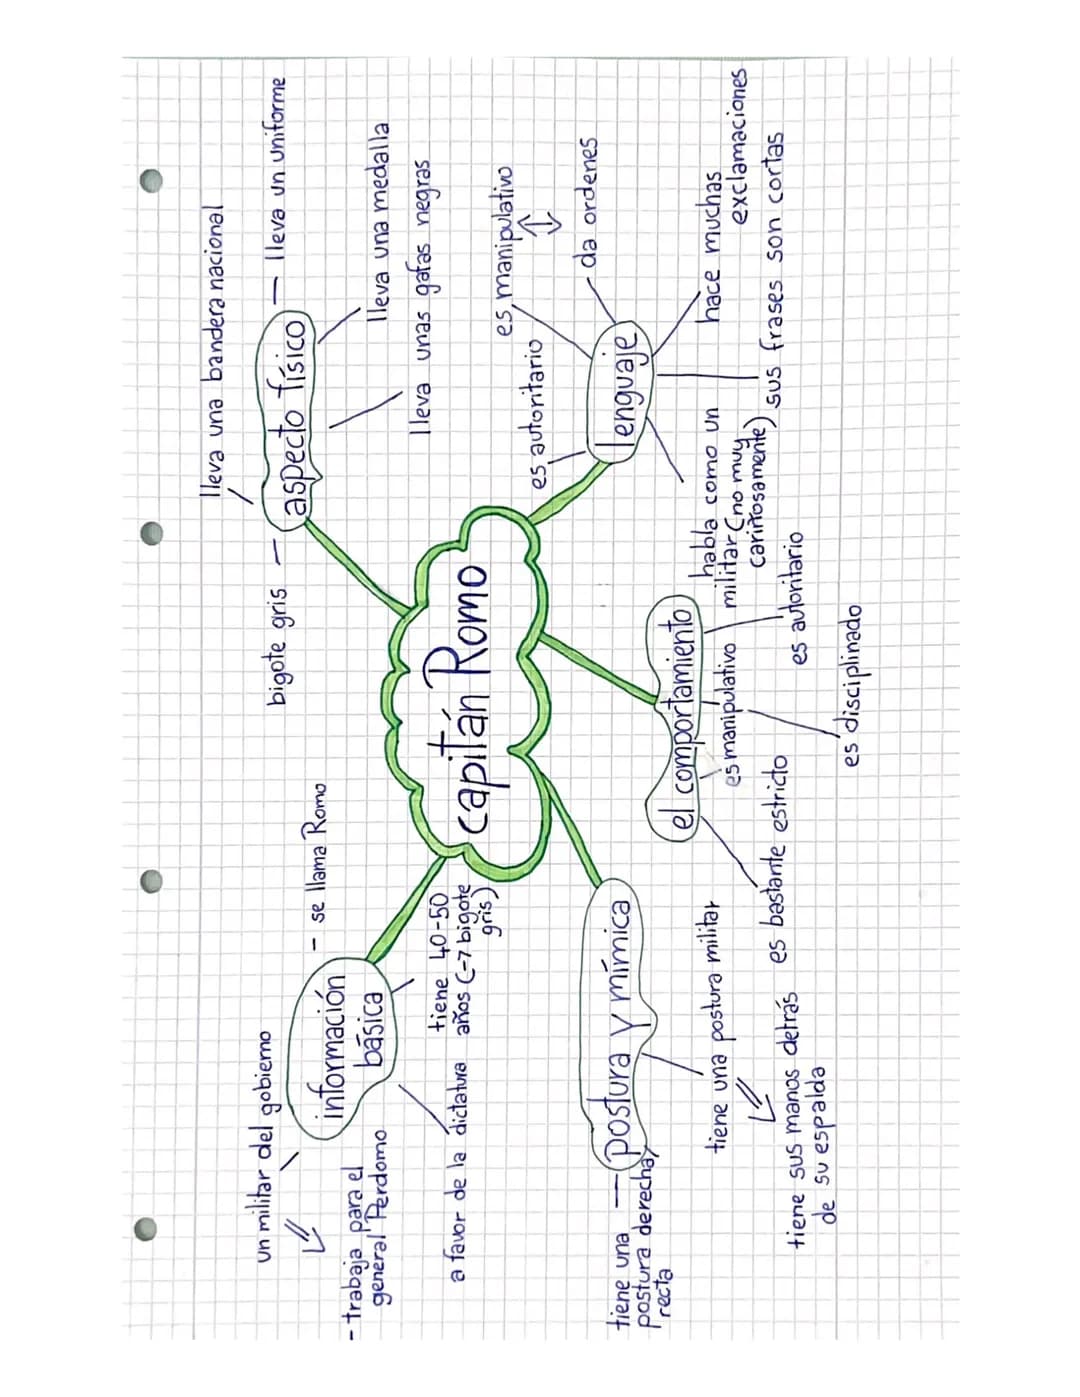 capitán Romo
información
básica
- se llama Romo
un militar del gobierno
- trabaja para el
general Perdomo
a favor de la dictatura
tiene 40-50
años (-7 bigote
gris)
aspecto físico
bigote gris
lleva una bandera nacional
lleva un uniforme
lleva una medalla
lleva unas gafas negras
lenguaje
es autoritario
es manipulativo
da ordenes
hace muchas
exclamaciones
sus frases son cortas
habla como un
militar (no muy
cariñosamente)
el comportamiento
es manipulativo
es autoritario
es disciplinado
es bastante estricto
postura y mímica
tiene una
postura derecha/
recta
tiene una postura militar
tiene sus manos detrás
de su espalda